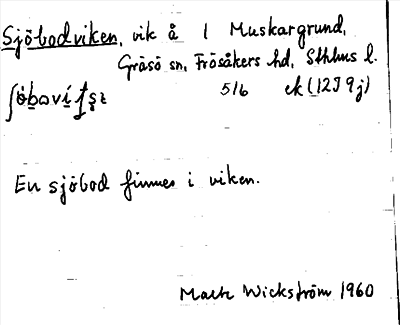 Sjöbodviken, vik å 1 Muskargrund,
Gräsö sn, Frösåkers hd, Sthlms l.
5/6 ek (12J 9j)
En sjöbod finnes i viken.
Wickström 1960